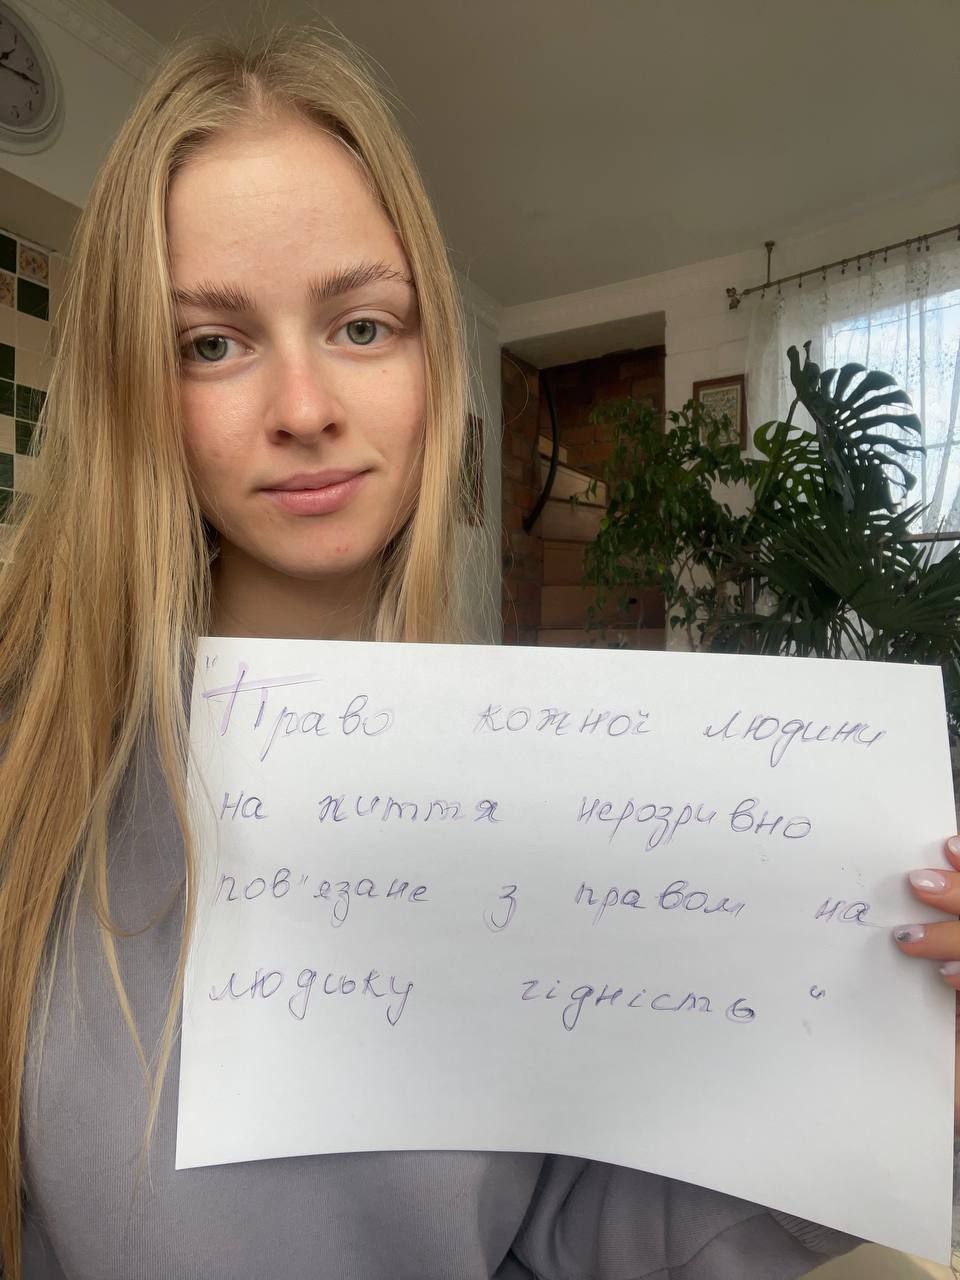 "Право кожної людини
на життя нерозривно
пов'язане з правом на
людську гідність"